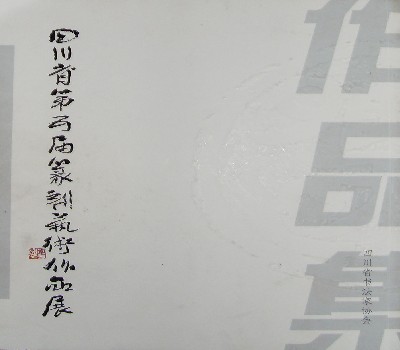 作品集
四川省书法家协会
四川省第五届篆刻艺術作品展